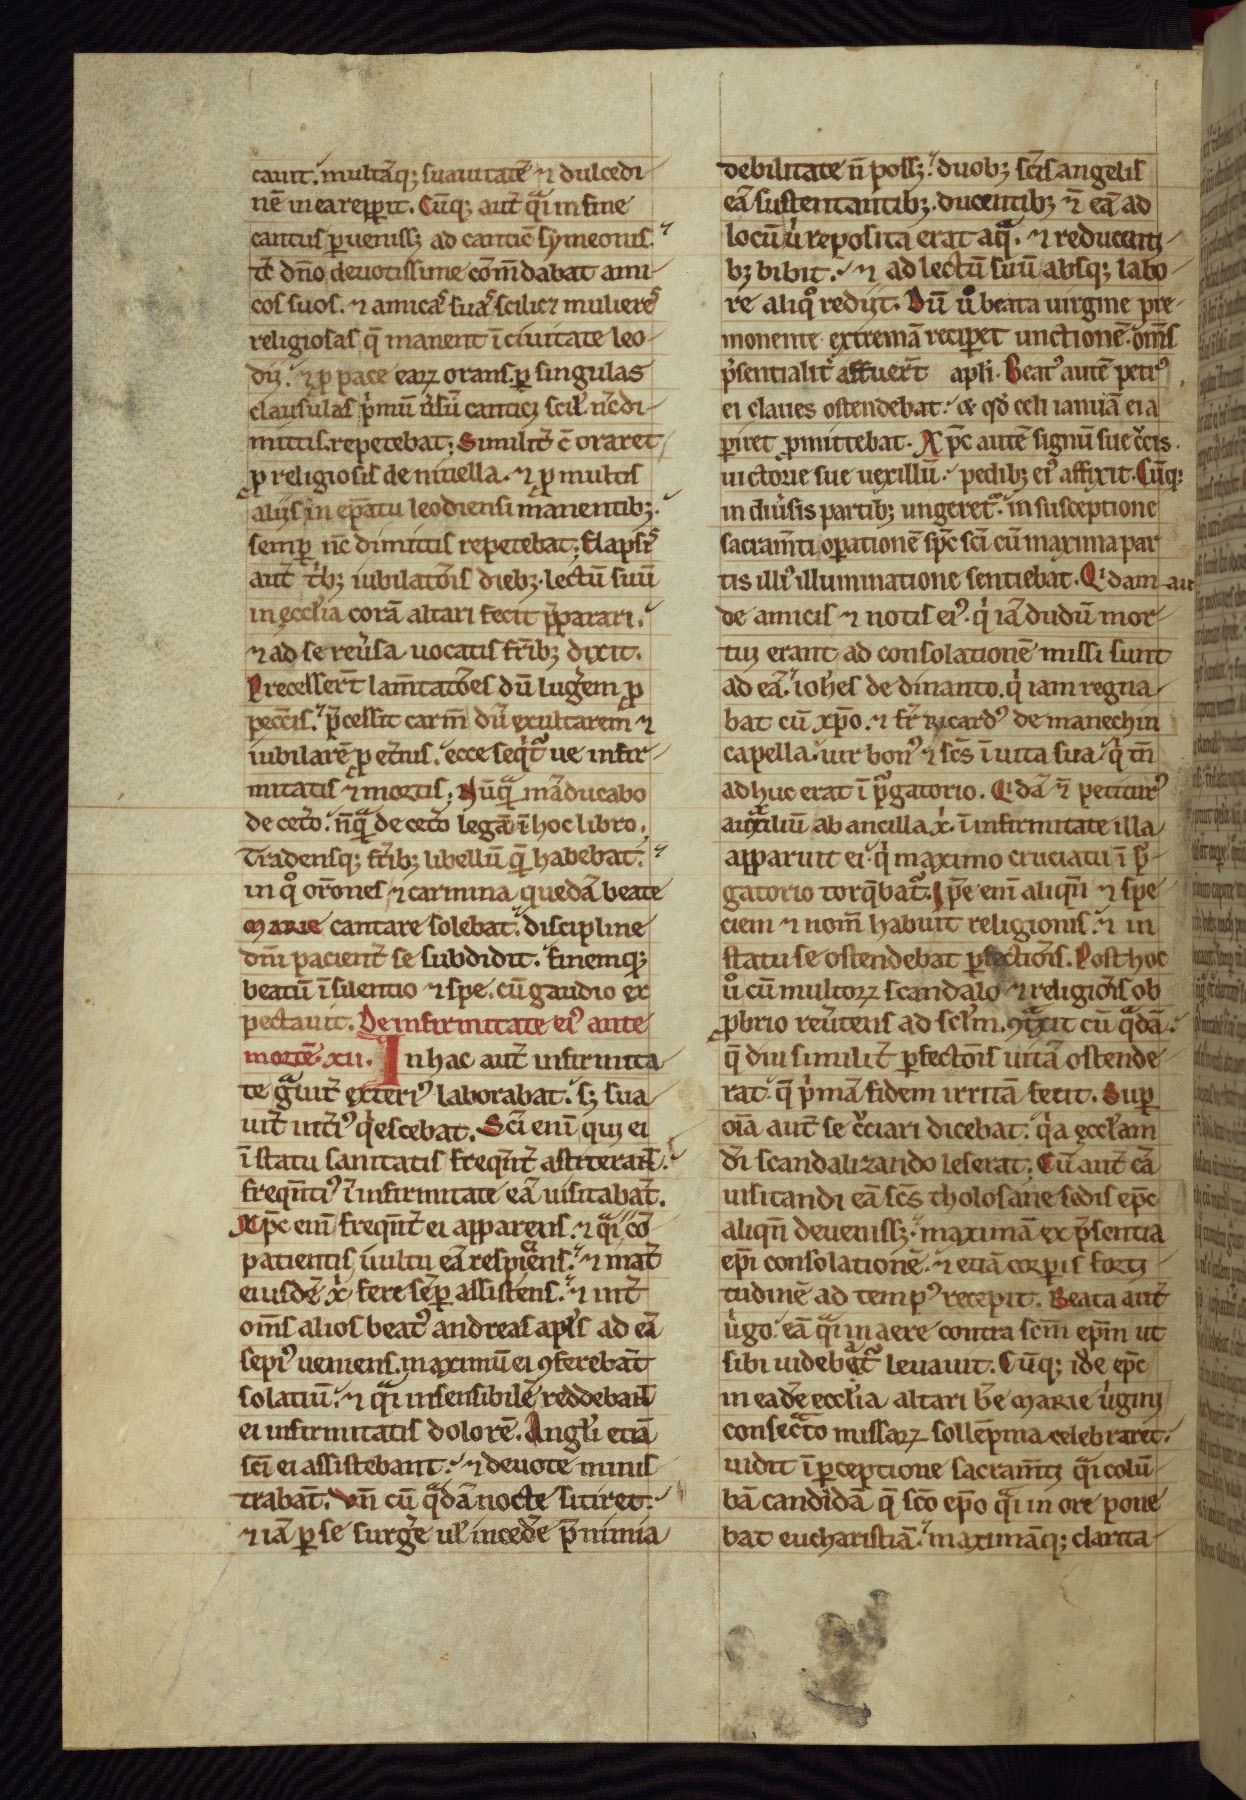 cauit. multāq; suauitatē ⁊ dulcedi-
nē in ea repperit. Cūq; aut̄ q̄si in fine
cantus ꝑuenissꝫ ad canticū symeonis.
tc̄ dn̄o deuotissime cōm̄dabat ami-
cos suos. ⁊ amicas suas scilicet mulieres
religiosas q̄ manent ī ciuitate leo-
dij. ⁊ ꝓ pace eaꝝ orans. ꝑ singulas
clausulas p̄mū ūsū cantici scil' nc̄ di-
mittis. repetebat; Similit̄ cū oraret
ꝓ religiosis de niuella. ⁊ ꝓ multis
alijs in ep̄atu leodiensi manentibꝫ.
semꝑ nc̄ dimittis repetebat; Elapsis
aut̄ t'bꝫ iubilatōis diebꝫ. lectū suū
in ęccl'ia corā altari fecit p̄parari.
⁊ ad se reu'sa uocatis fr̄ibꝫ dixit.
Precesser̄t lam̄tatōes dū lug'em ꝓ
pecc̄is. p̄cessit carm̄ dū exultarem ⁊
iubilarē ꝓ et'nis. ecce seqͥtᷣ ue infir-
mitatis ⁊ mortis; Nūq̄ māducabo
de cet'o. nūq̄ de cet'o legā ī hoc libro.
Tradensq; fr̄ibꝫ libellū quē habebat.
in qͦ or̄ones ⁊ carmina quedā beate
marie cantare solebat. discipline
dn̄i pacient̄ se subdidit. finemq;
beatū ī silentio ⁊ spe. cū gaudio ex
pectauit. De infirmitate ei' ante
mortē. xii. In hac aut̄ infirmita-
te gᵃuit̄ exteri' laborabat. sꝫ sua
uit̄ int'i' qͥescebat. Sc̄i enī qui ei
ī statu sanitatis freqn̄t̄ astiterant.
freqn̄ti' ī infirmitate eā uisitabāt.
Xp̄c enī freqn̄t̄ ei apparens. ⁊ qᵃi cō
patientis uultu eā respiciens. ⁊ mat̄
eiusdē x̄ fere sēꝑ assistens. ⁊ int̄
om̄s alios beat' andreas apl's ad eā
sepi' ueniens. maximū ei ꝯferebat
solatiū. ⁊ qᵃi insensibilē reddebat
ei infirmitatis dolorē. Angl'i etiā
sc̄i ei assistebant. ⁊ deuote minis
trabāt. Vn̄ cū qᵃdā nocte sitiret.
⁊ iā ꝑ se surg'e ul' inced'e p̄ nimia
debilitate n̄ possꝫ. duobꝫ sc̄is angelis
eā sustentantibꝫ. ducentibꝫ ⁊ eā ad
locū u' reposita erat aqᵃ. ⁊ reducenti-
bꝫ bibit. ⁊ ad lectū suū absq; labo-
re aliqͦ redijt. Dū u' beata uirgine pre-
monente extremā reciꝑet unctionē. om̄s
p̄sentialit̄ affuer̄t apl'i. Beat' autē petr'
ei claues ostendebat. ⁊ qd' celi ianuā ei a
ꝑiret ꝓmittebat. Xp̄c autē signū sue c'cis.
uictorie sue uexillū. pedibꝫ ei' affixit. Cūq;
in diu'sis partibꝫ ungeretᷣ. in susceptione
sacram̄ti oꝑationē sp̄c sc̄i cū maxima par
tis illi' illuminatione sentiebat. Qͥdam aut̄
de amicis ⁊ notis ei'. qͥ iā dudū mor-
tui erant ad consolationē missi sunt
ad eā. ioh'es de dinanto. qͥ iam regna
bat cū xp̄o. ⁊ fr̄ Ricard' de manechin
capella. uir bon' ⁊ sc̄s ī uita sua. qͥ tn̄
adhuc erat ī p'gatorio. Qͥdā ⁊ petitur'
auxiliū ab ancilla x̄. ī infirmitate illa
apparuit ei. qͥ maximo cruciatu ī p'-
gatorio torq̄batᷣ. Ip̄e enī aliqn̄ ⁊ spe
ciem ⁊ nom̄ habuit religionis. ⁊ in
statu se ostendebat ꝑfectiōis. Post hoc
u' cū multoꝝ scandalo ⁊ religiōis ob
ꝓbrio reu'tens ad sclm̄. ꝯtᵃxit cū qᵃdā.
q̄ diu similit̄ ꝑfectōis uitā ostende
rat. q̄ p'mā fidem irritā fecit. Suꝑ
oīa aut̄ se c'ciari dicebat. qͥa ęccl'am
d'i scandalizando leserat. Cū aut̄ cā
uisitandi eā sc̄s tholosane sedis ep̄c
aliqn̄ deuenissꝫ. maximā ex p̄sentia
ep̄i consolationē. ⁊ etiā corꝑis forti
tudinē ad temp' recepit. Beata aut̄
u'go. eā qᵃi in aere contra sc̄m ep̄m ut
sibi uidebatᷣ leuauit. Cūq; idē ep̄c
in eadē eccl'ia altari b'e marie u'gini
consecᵃto missaꝝ sollēpnia celebraret.
uidit ī ꝑceptione sacram̄ti qᵃi colū-
bā candidā q̄ sc̄o ep̄o qᵃi in ore pone
bat eucharistiā. maximāq; clarita-